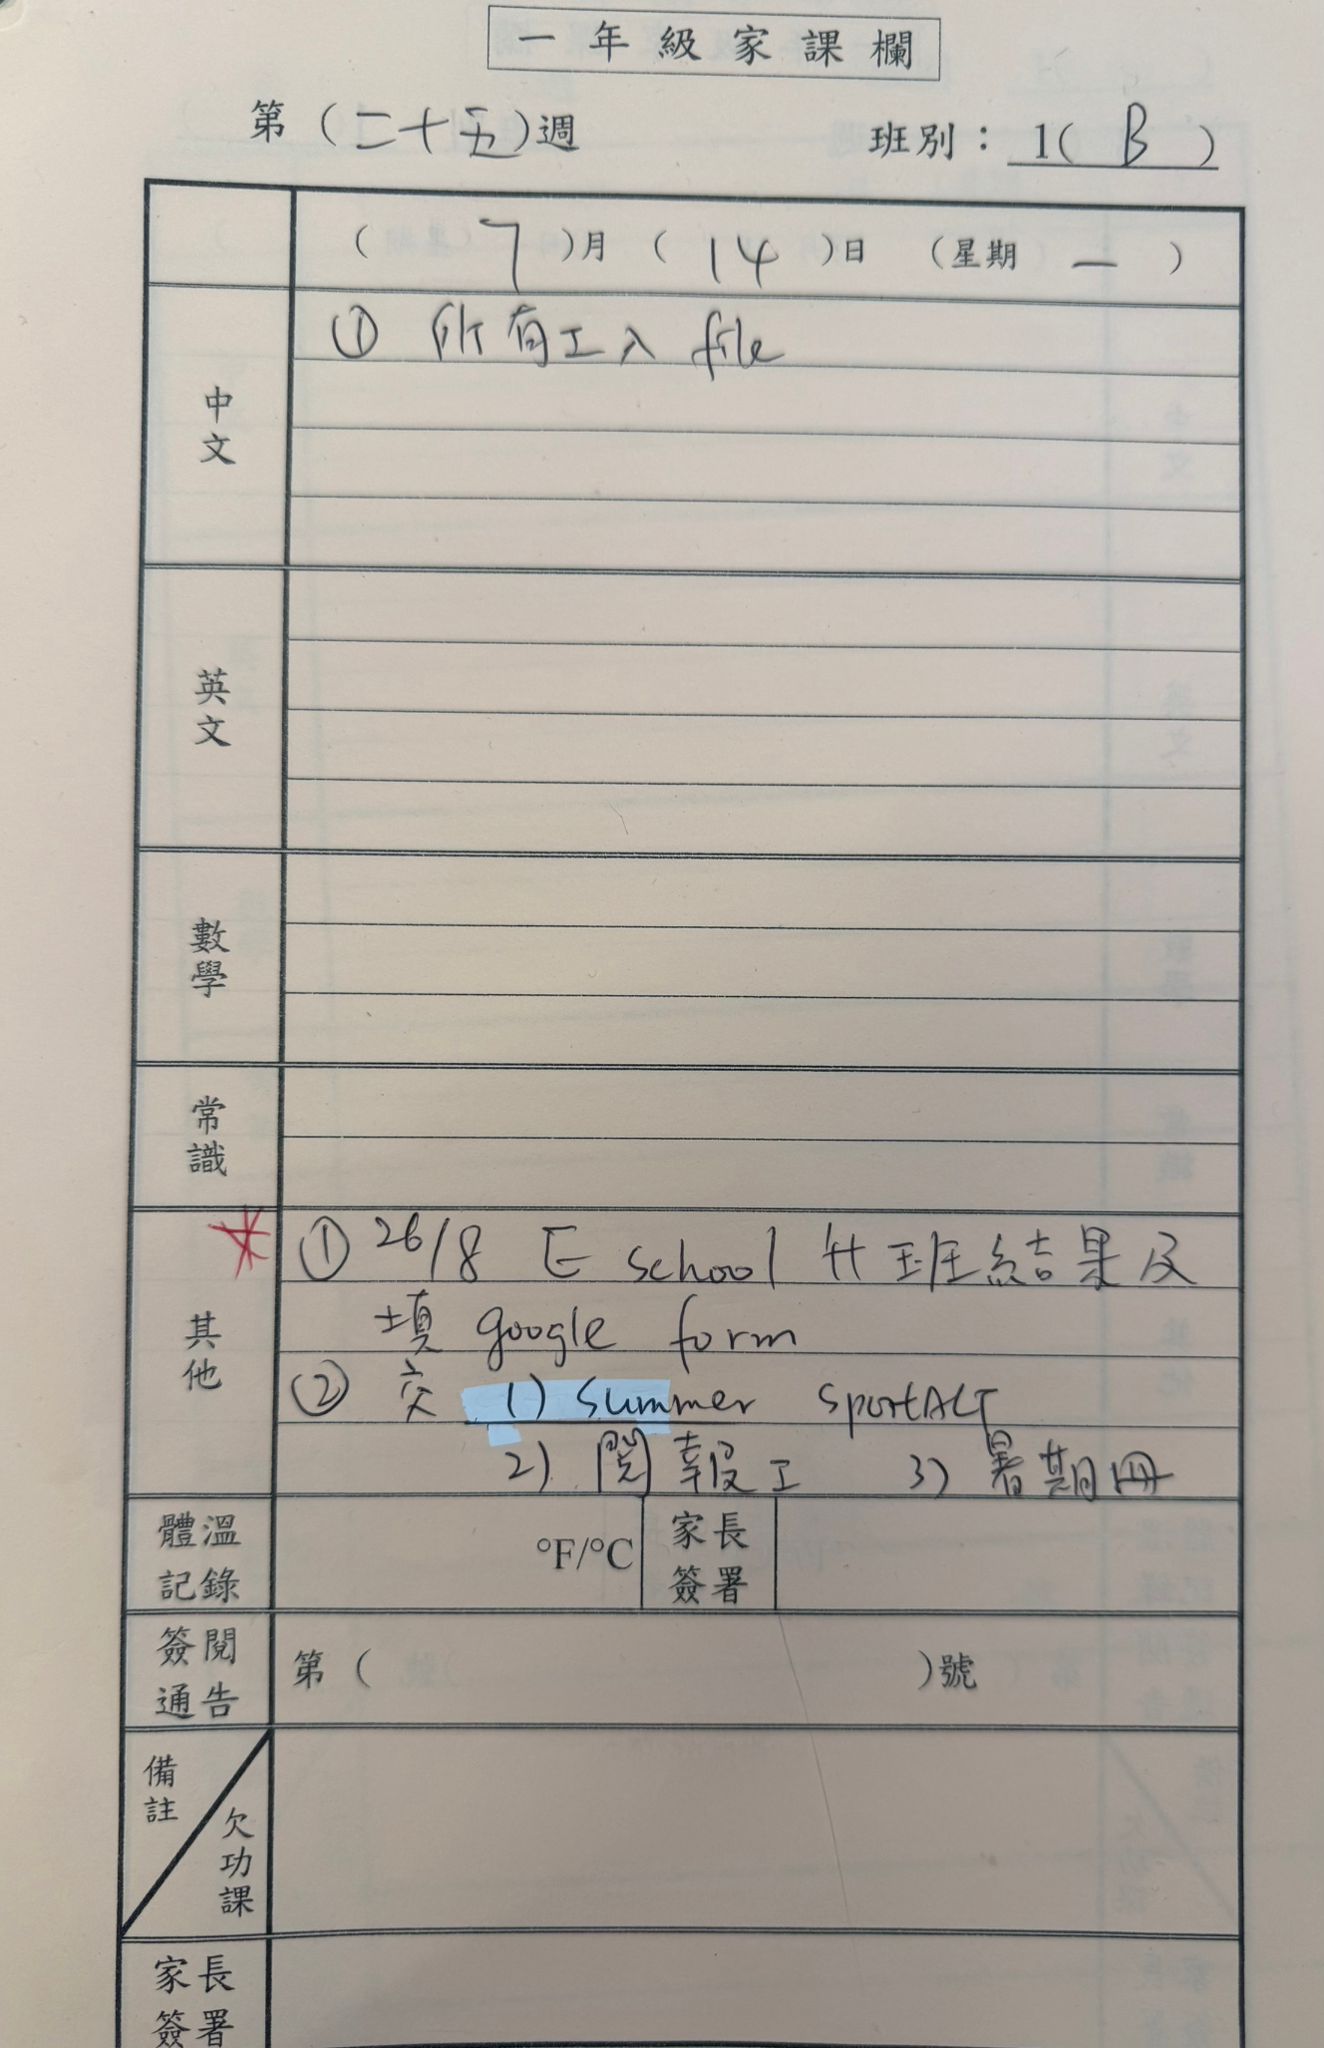 一年級家課欄
第（二十五）週
班別：1( B )
（ 7 ）月（ 14 ）日（星期 一 ）
中文
① 所有工入 file
英文
數學
常識
其他
① 26/8 E school 升班結果及
填 google form
② 交 1) Summer SportACT
2) 閱報工 3) 暑期冊
體溫記錄
°F/°C
家長簽署
簽閱通告
第（ ）號
備註
欠功課
家長簽署